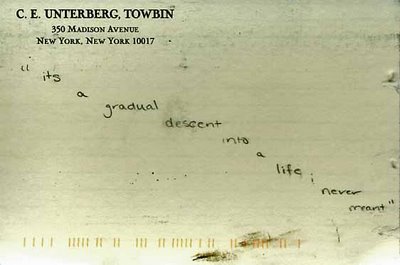 C. E. UNTERBERG, TOWBIN
350 MADISON AVENUE
NEW YORK, NEW YORK 10017
"its
a
gradual
descent
into
a
life i
never
meant"